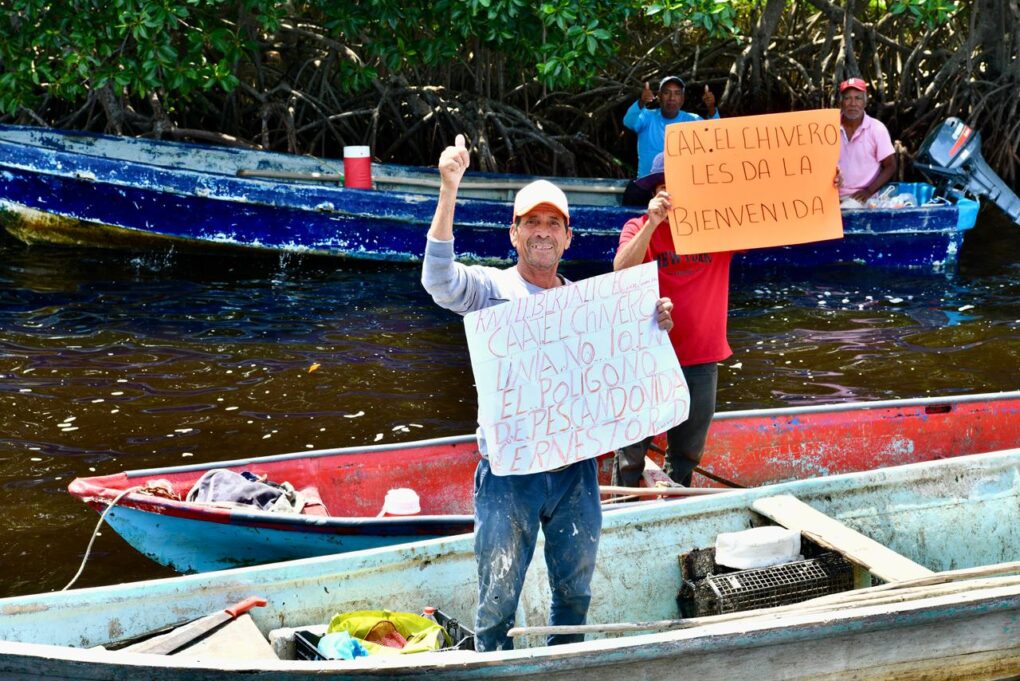 CAA. EL CHIVERO
LES DA LA
BIENVENIDA
CAA EL CHIVERO
UNIA. NO. 10. EN
EL POLIGONO
DE PESCANDOVIDA
ERNESTO R.